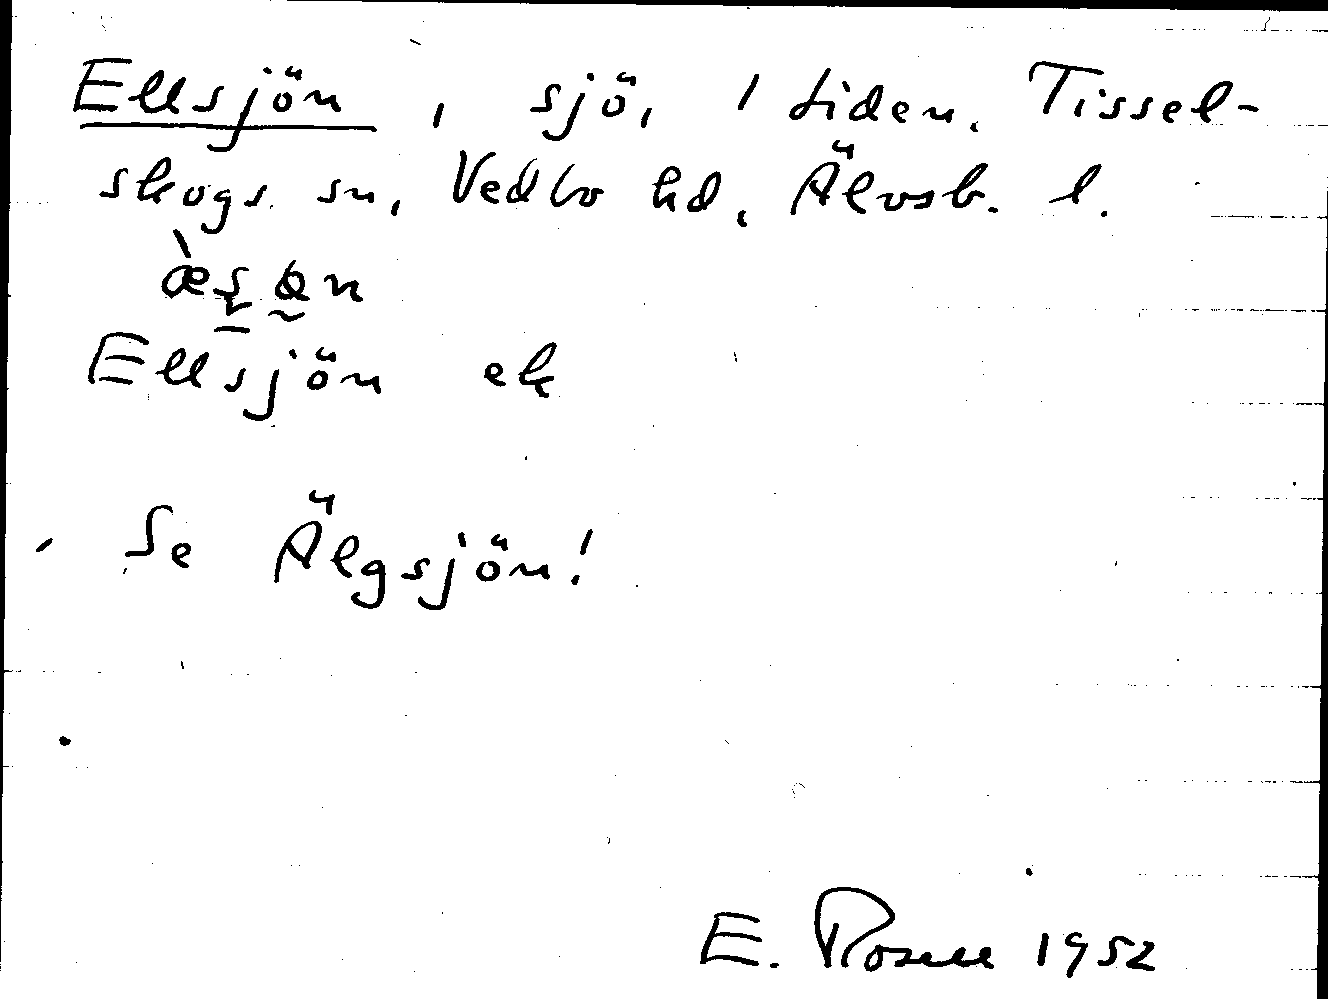 Ellsjön, sjö, 1 tiden. Tissel-
skogs sn, Vedbo hd, Älvsb. l.
Ellsjön ek
Se Älgsjön!
E. Rosell 1952